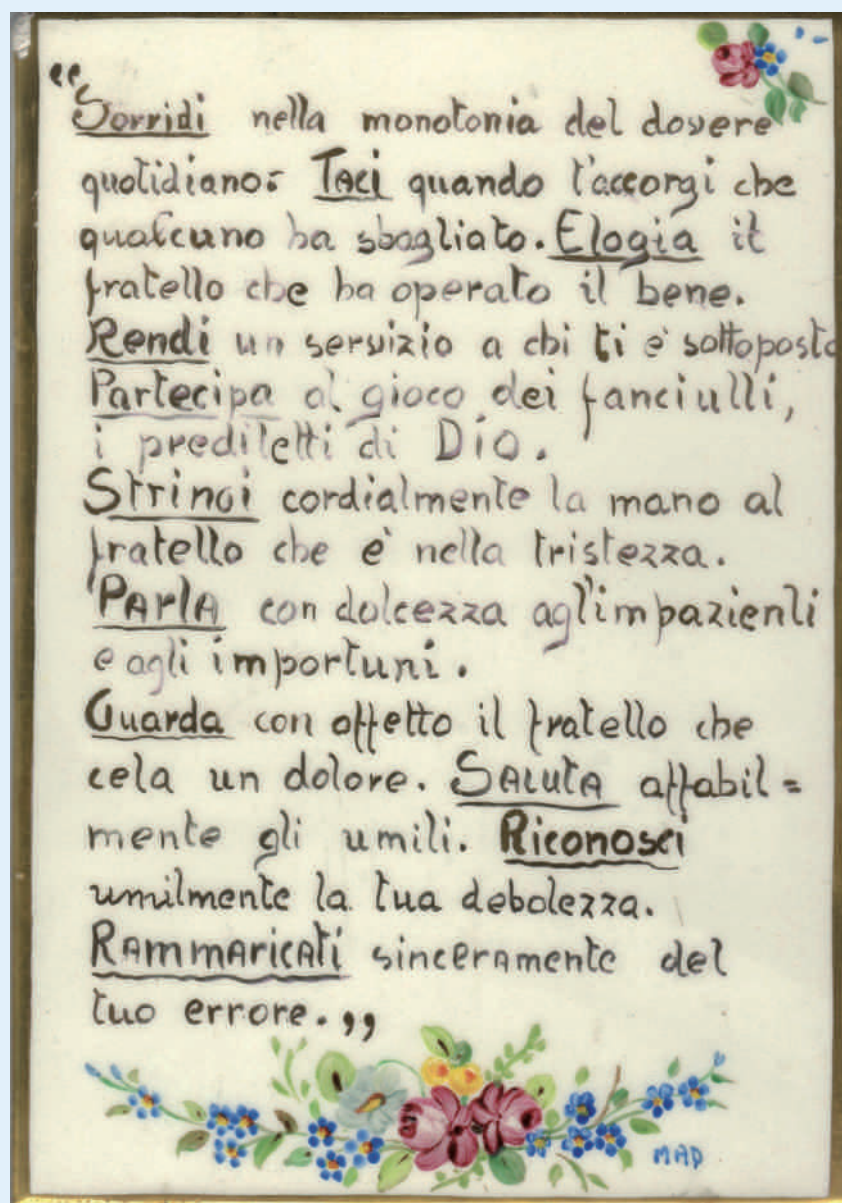 “Sorridi nella monotonia del dovere
quotidiano: Taci quando t'accorgi che
qualcuno ha sbagliato. Elogia il
fratello che ha operato il bene.
Rendi un servizio a chi ti è sottoposto
Partecipa al gioco dei fanciulli,
i prediletti di DIO.
Stringi cordialmente la mano al
fratello che è nella tristezza.
PARLA con dolcezza agl'impazienti
e agli importuni.
Guarda con affetto il fratello che
cela un dolore. SALUTA affabil=
mente gli umili. Riconosci
umilmente la tua debolezza.
RAMMARICATI sinceramente del
tuo errore.”
MAP